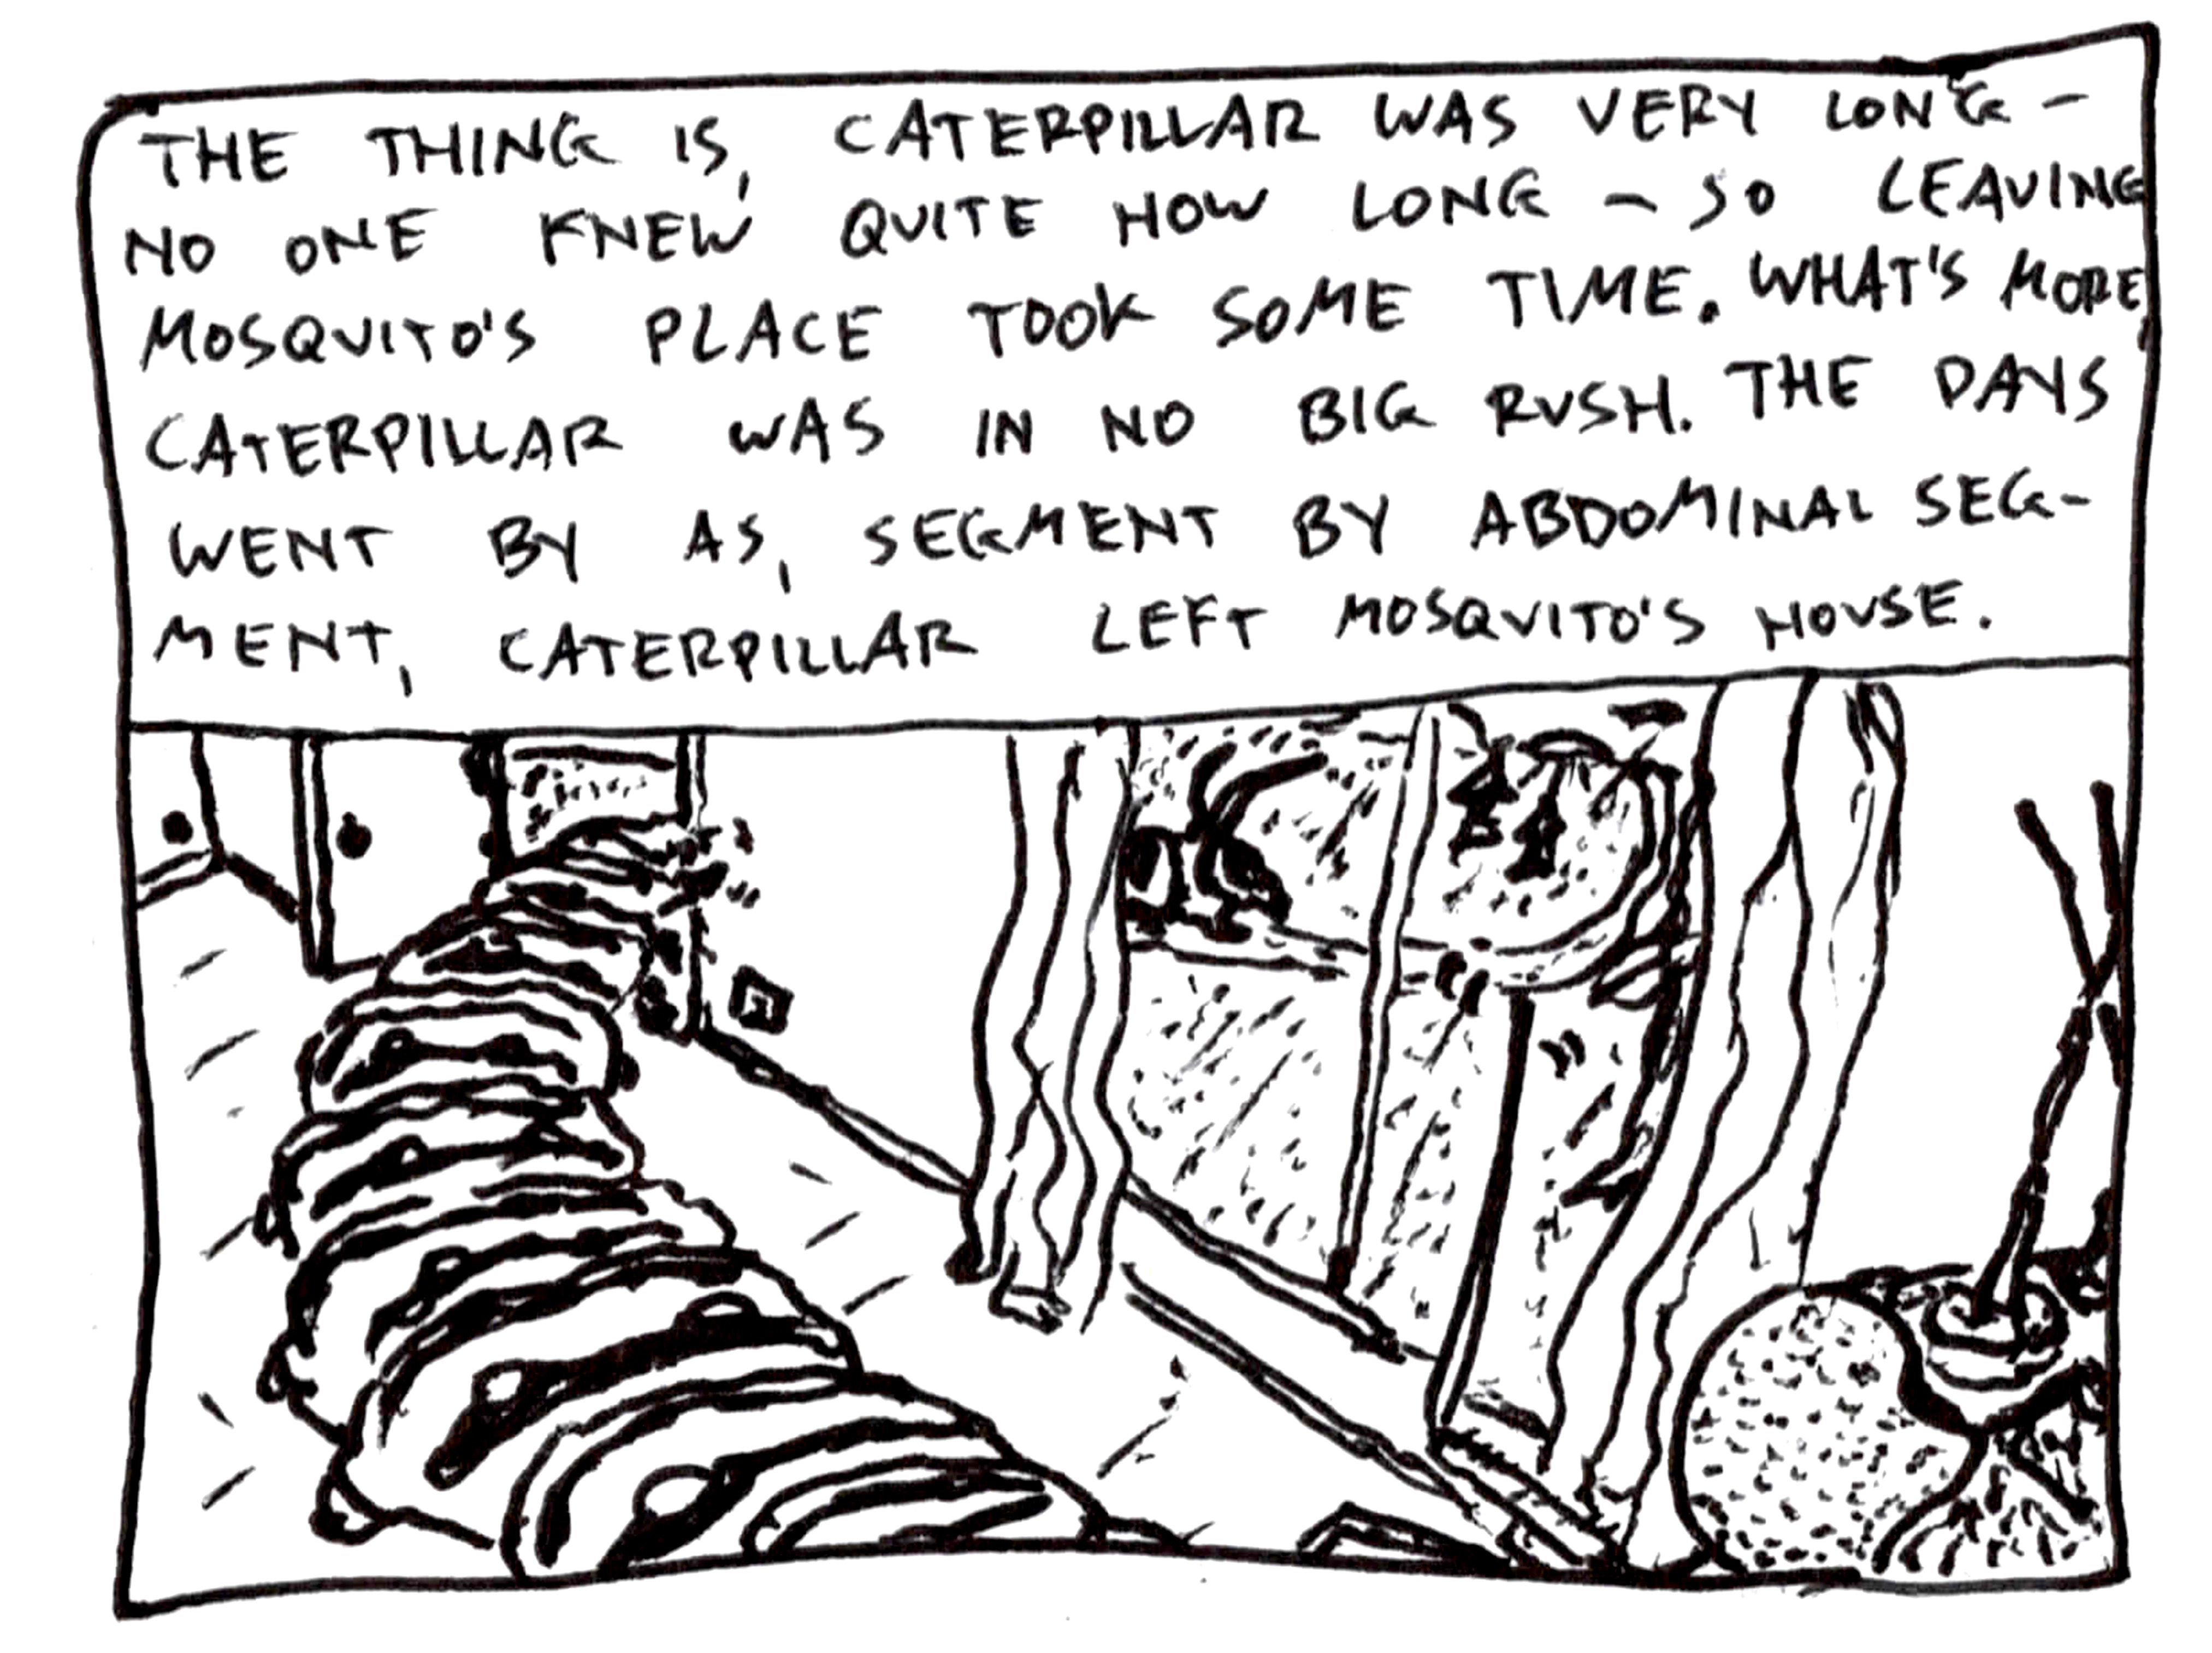 THE THING IS, CATERPILLAR WAS VERY LONG -
NO ONE KNEW QUITE HOW LONG - SO LEAVING
MOSQUITO'S PLACE TOOK SOME TIME. WHAT'S MORE,
CATERPILLAR WAS IN NO BIG RUSH. THE DAYS
WENT BY AS, SEGMENT BY ABDOMINAL SEG-
MENT, CATERPILLAR LEFT MOSQUITO'S HOUSE.